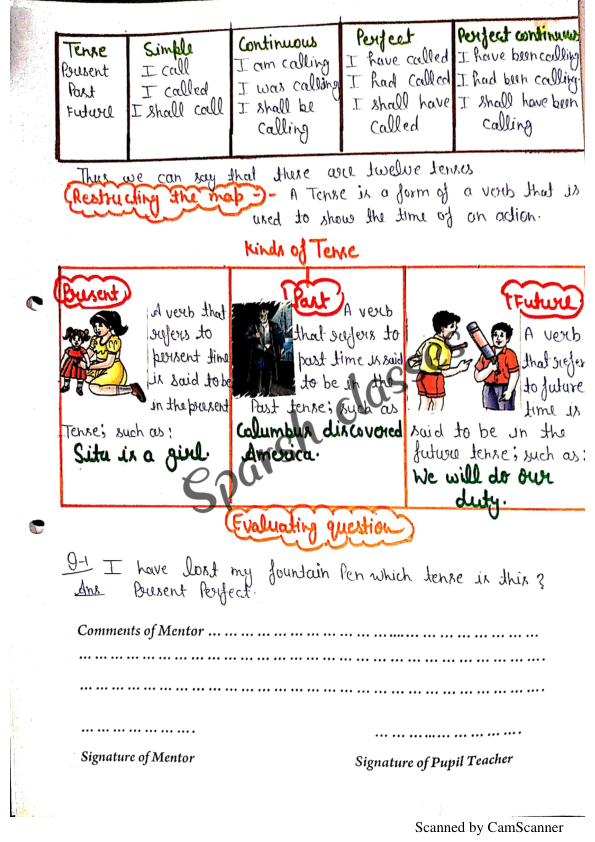 Tense Simple Continuous Perfect Perfect continuous
Present I call I am calling I have called I have been calling
Past I called I was calling I had called I had been calling.
Future I shall call I shall be calling I shall have called I shall have been calling
Thus we can say that these are twelve tenses
Restructing the map :- A Tense is a form of a verb that is
used to show the time of an action.
Kinds of Tense
Present
A verb that
refers to
persent time
is said to be
in the present
Tense; such as:
Situ is a girl.
Past
A verb
that refers to
past time is said
to be in the
Past tense; such as
Calumbus discovered
America.
Future
A verb
that refer
to future
time is
said to be in the
future tense; such as:
We will do our
duty.
Sparch classes
Evaluating question
Q-1 I have lost my fountain Pen which tense is this?
Ans Present Perfect.
Comments of Mentor ... ... ... ... ... ... ... ... ... ... ... ... ... ... ... ... ... ... ...
... ... ... ... ... ... ... ... ... ... ... ... ... ... ... ... ... ... ... ... ... ... ... ... ... ... ...
... ... ... ... ... ... ... ... ... ... ... ... ... ... ... ... ... ... ... ... ... ... ... ... ... ... ...
... ... ... ... ... ... ... ... ... ... ... ... ... ... ...
Signature of Mentor Signature of Pupil Teacher
Scanned by CamScanner